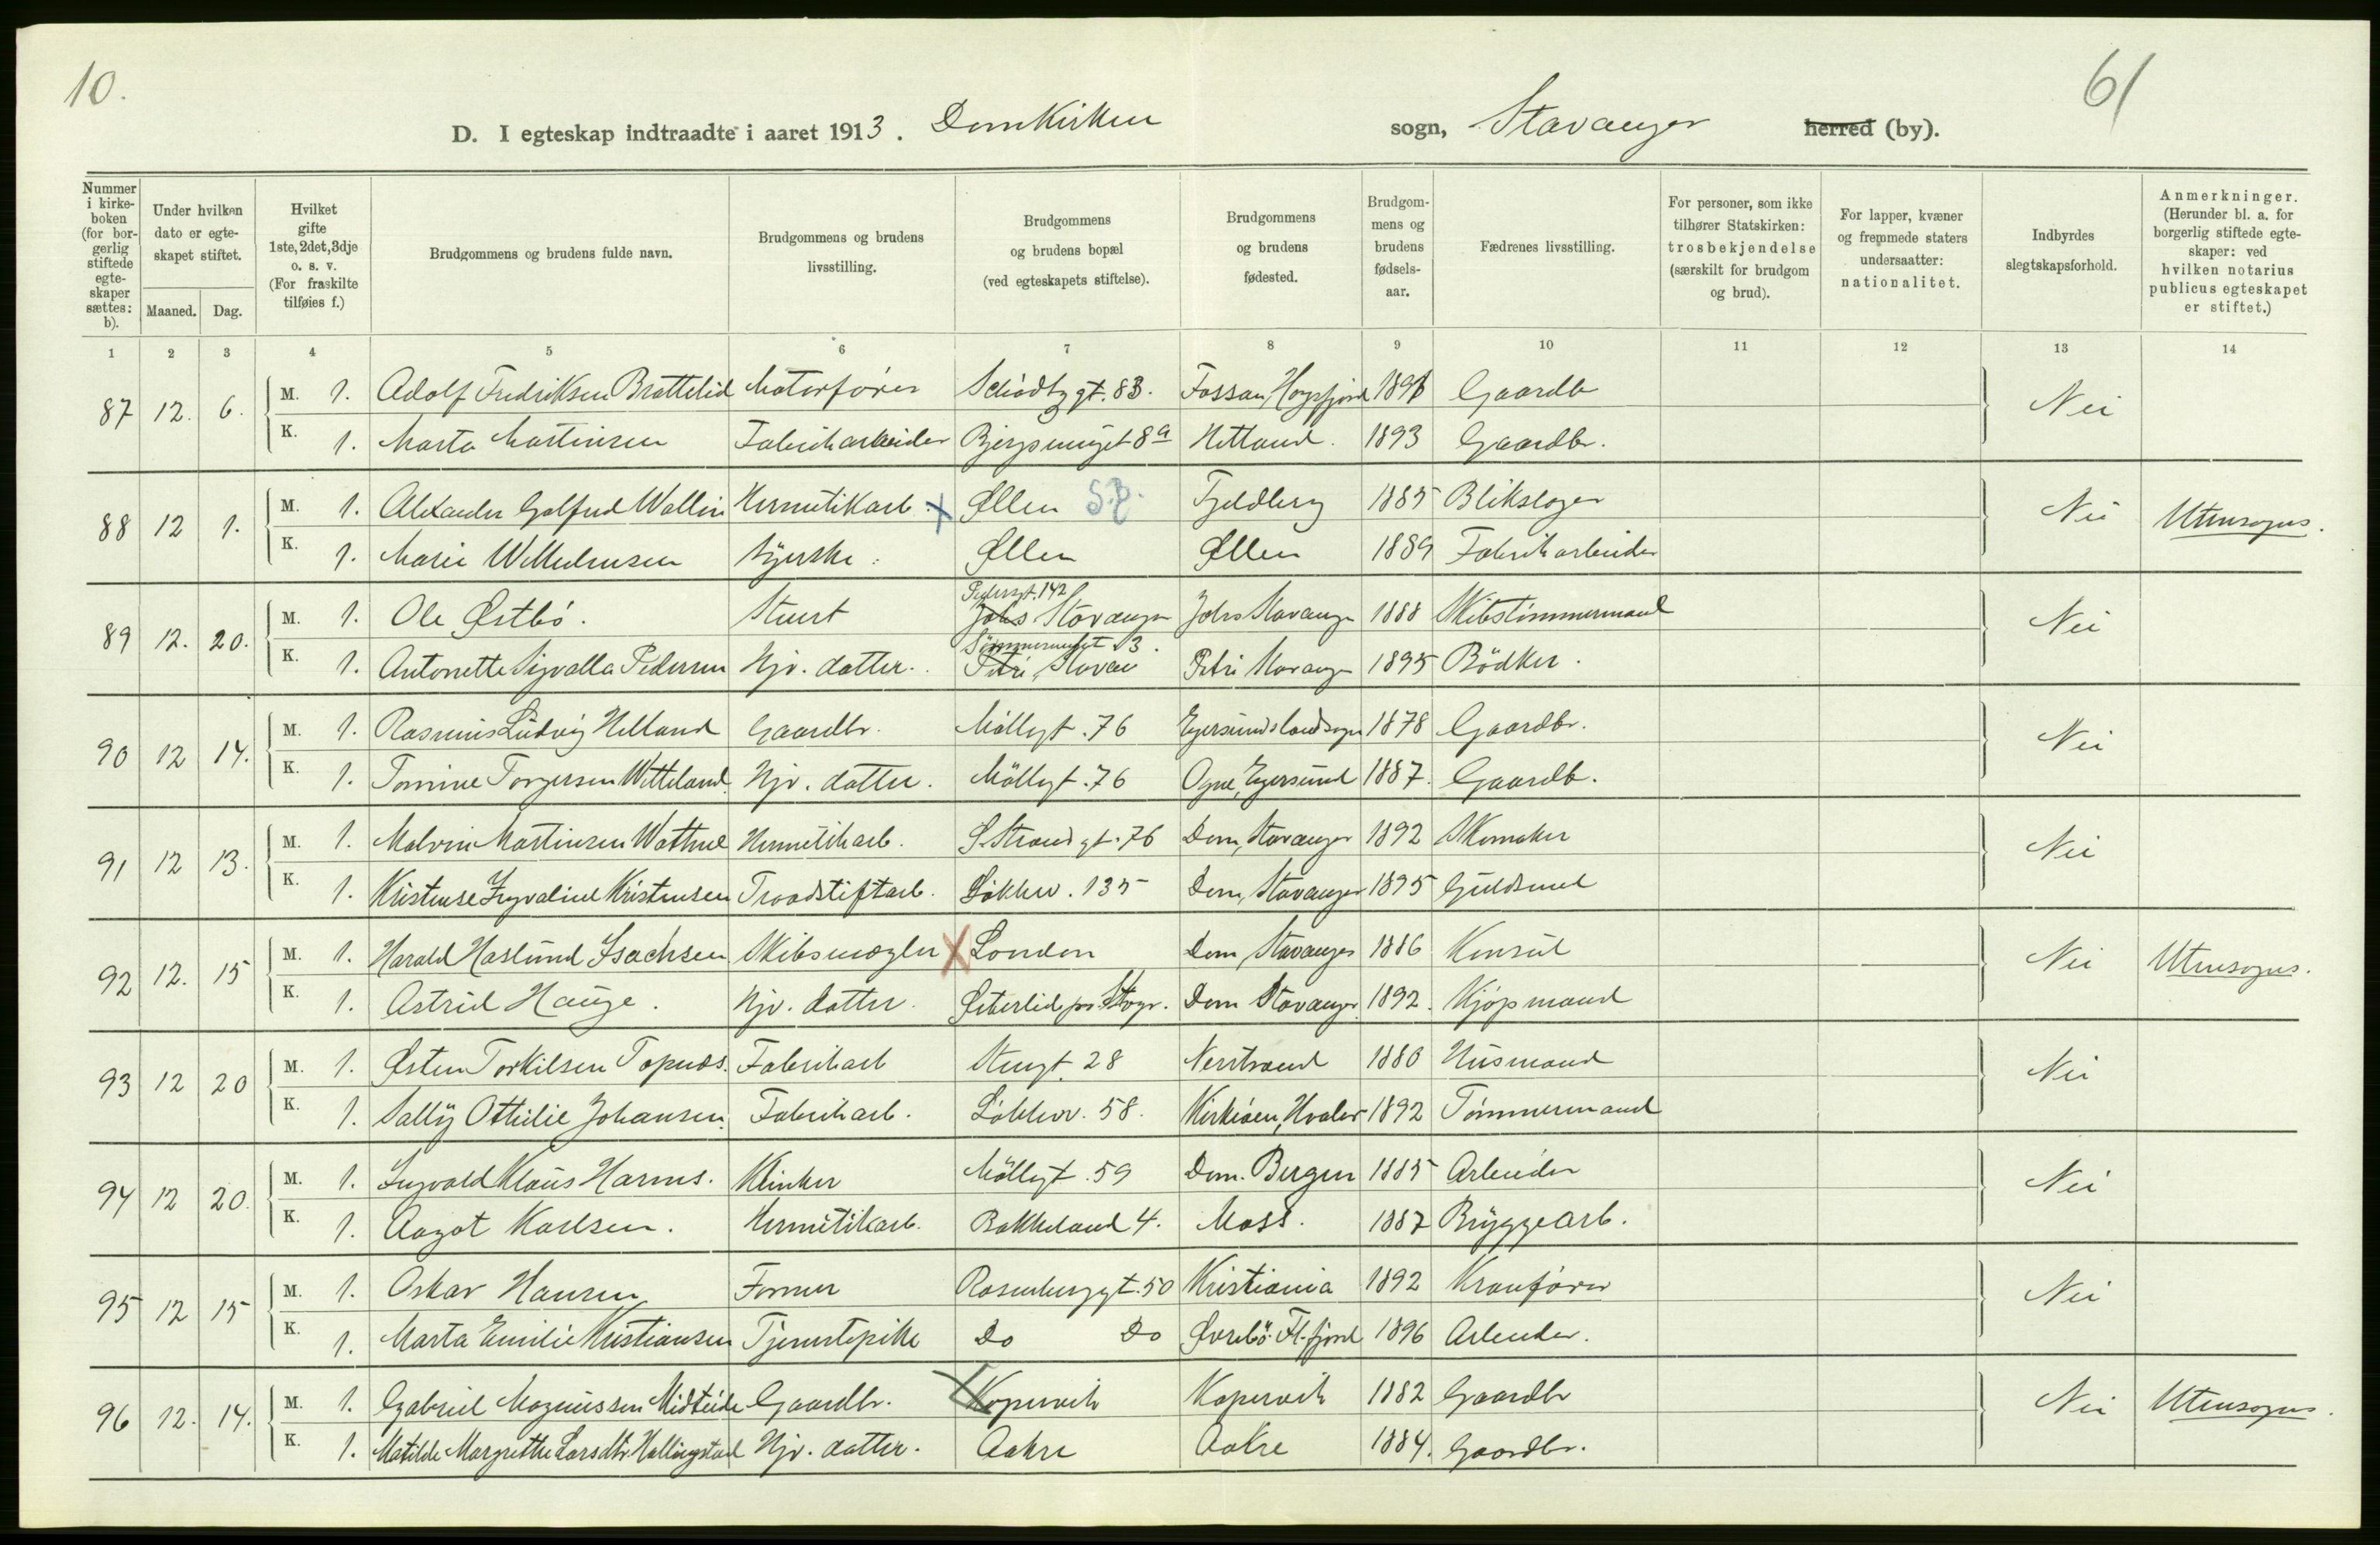 10.
61
D. I egteskap indtraadte i aaret 1913. Domkirken sogn, Stavanger herred (by).
Nummer i kirkeboken (for borgerlig stiftede egteskaper sættes: b).
Under hvilken dato er egteskapet stiftet.
Maaned. Dag.
Hvilket gifte 1ste, 2det, 3dje o. s. v. (For fraskilte tilføies f.)
Brudgommens og brudens fulde navn.
Brudgommens og brudens livsstilling.
Brudgommens og brudens bopæl (ved egteskapets stiftelse).
Brudgommens og brudens fødested.
Brudgommens og brudens fødselsaar.
Fædrenes livsstilling.
For personer, som ikke tilhører Statskirken: trosbekjendelse (særskilt for brudgom og brud).
For lapper, kvæner og fremmede staters undersaatter: nationalitet.
Indbyrdes slegtskapsforhold.
Anmerkninger. (Herunder bl. a. for borgerlig stiftede egteskaper: ved hvilken notarius publicus egteskapet er stiftet.)
1 2 3 4 5 6 7 8 9 10 11 12 13 14
87 12. 6. M. 1. Adolf Fredriksen Brattelid Motorfører Schiødtz gt. 83. Fossan, Høgsfjord Gaardb Nei
K. 1. Marta Martinsen Fabrikarbeider Bjergsmuget 8a Hetland. 1893 Gaardbr.
88 12 1. M. 1. Alexander Golfred Wallin Hermetikarb. Øllen S.P. Tjeldberg 1885 Blikslager Nei Utensogns.
K. 1. Marie Wilhelmsen Syerske. Øllen Øllen 1889 Fabrikarbeider
89 12. 20. M. 1. Ole Østbø. Stuert Pedersgt. 142 Johs Stavanger Johs Stavanger 1888 Skibstømmermand Nei
K. 1. Antonette Sigvalla Pedersen Hjv. datter. 13. Petri, Stavan Petri Stavanger 1895 Bødker.
90 12 14. M. 1. Rasmus Ludvig Helland Gaardbr. Møllegt. 76 Egersunds landsogn 1878 Gaardbr. Nei
K. 1. Tomine Torgersen Hjv. datter. Møllegt. 76 Ogne, Egersund 1887. Gaardb.
91 12 13. M. 1. Malvin Martinsen Watne Hermetikarb. S. Strandgt. 76 Dom, Stavanger 1892 Skomaker Nei
K. 1. Kristense Ingvaline Kristensen Traadstiftarb. Løkkev. 135 Dom, Stavanger 1895 Guldsmed
92 12. 15 M. 1. Harald Haslund Isachsen Skibsmægler London Dom, Stavanger 1886 Konsul Nei Utensogns.
K. 1. Astrid Hauge. Hjv. datter. Østerlid pr. Stvgr. Dom Stavanger 1892. Kjøpmand
93 12 20 M. 1. Østen Torkilsen Topnæs. Fabrikarb Stengt. 28 Nerstrand 1880 Husmand Nei
K. 1. Sally Othilie Johansen. Fabrikarb. Løkkev. 58. Kirkøen, Hvaler 1892 Tømmermand
94 12 20. M. 1. Ingvald Klaus Harms. Klinker Møllegt. 59 Dom. Bergen 1885 Arbeider Nei
K. 1. Aagot Karlsen. Hermetikarb. Bakkeland 4. Moss. 1887 Bryggearb.
95 12 15 M. 1. Oskar Hansen Former Rosenberggt. 50 Kristiania 1892 Kranfører Nei
K. 1. Marta Emilie Kristiansen Tjenestepike Do Do Øvrebø. Fl. fjord 1896 Arbeider.
96 12. 14. M. 1. Gabriel Magnussen Midteide Gaardbr. Kopervik Kopervik 1882 Gaardbr Nei Utensogns.
K. 1. Matilde Margrethe Larsdtr. Hallingstad Hjv. datter. Aakre Aakre 1884. Gaardbr.